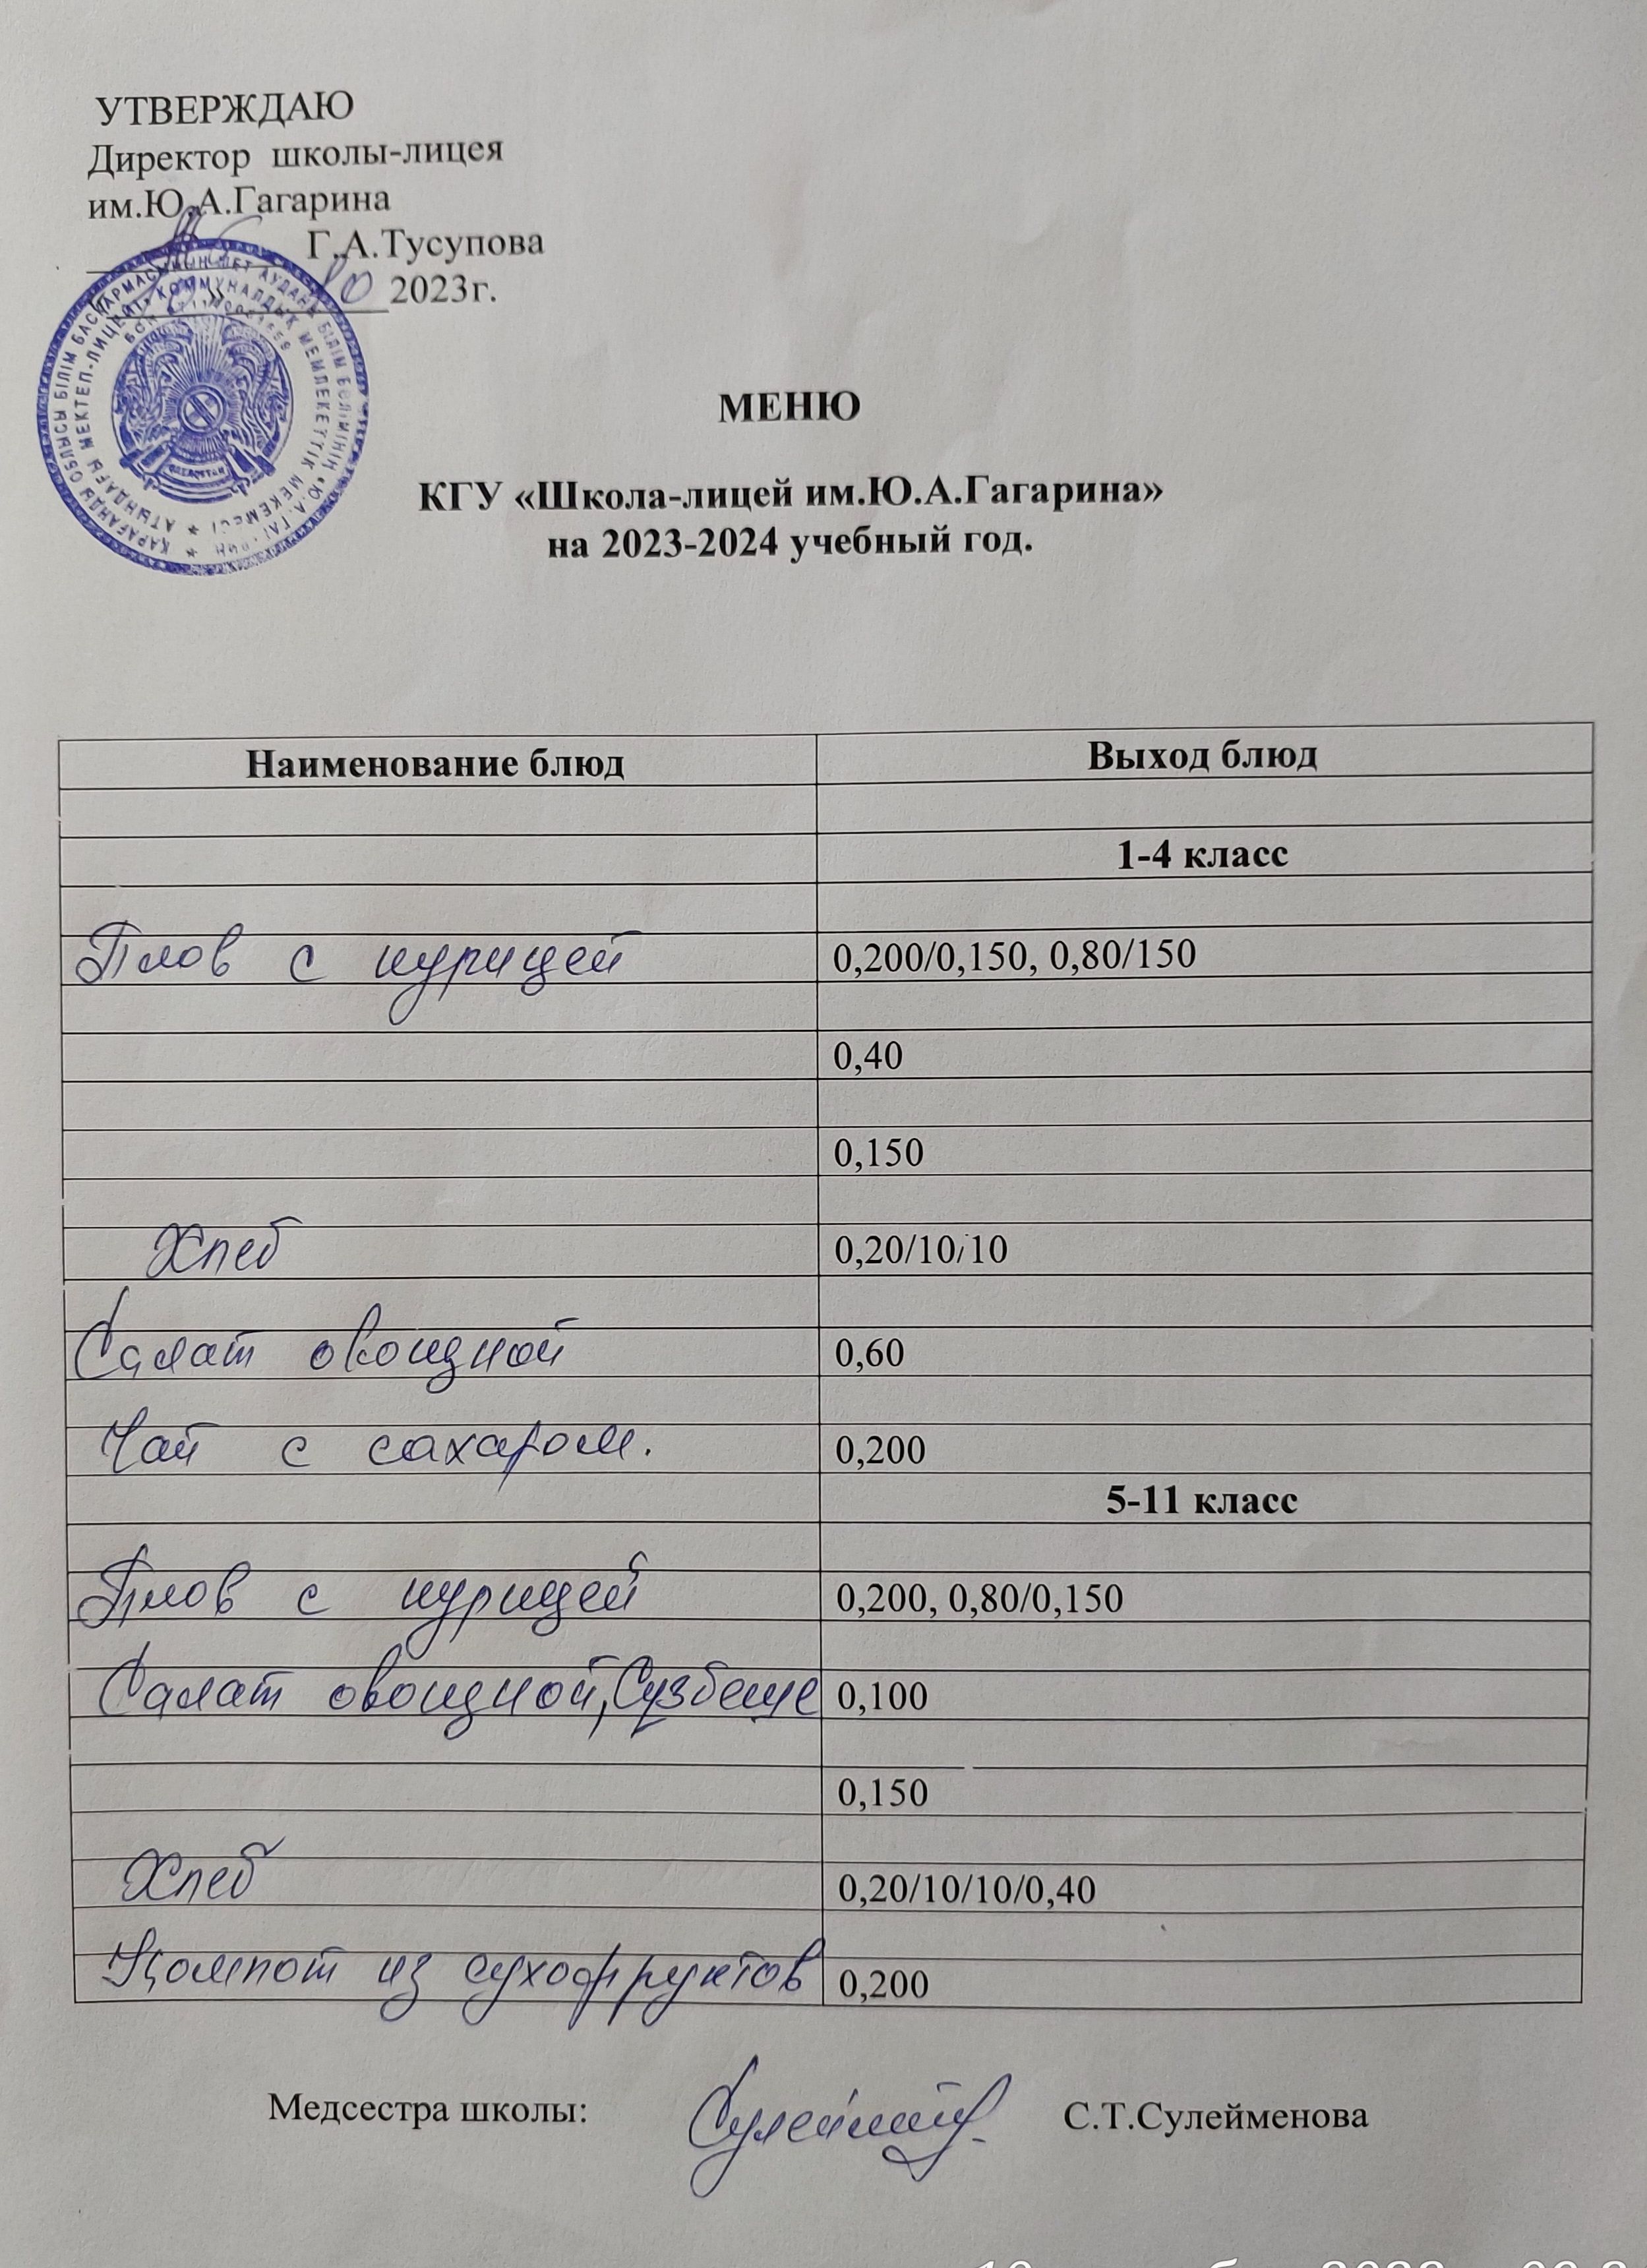 УТВЕРЖДАЮ
Директор школы-лицея
им.Ю.А.Гагарина
Г.А.Тусупова
10 2023г.
МЕНЮ
КГУ «Школа-лицей им.Ю.А.Гагарина»
на 2023-2024 учебный год.
Наименование блюд Выход блюд
1-4 класс
Плов с курицей 0,200/0,150, 0,80/150
0,40
0,150
Хлеб 0,20/10/10
Салат овощной 0,60
Чай с сахаром. 0,200
5-11 класс
Плов с курицей 0,200, 0,80/0,150
Салат овощной, Сузбеше 0,100
0,150
Хлеб 0,20/10/10/0,40
Компот из сухофруктов 0,200
Медсестра школы: С.Т.Сулейменова